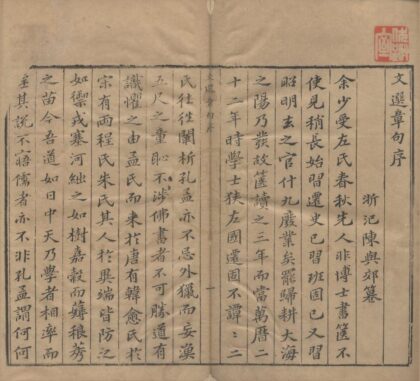 文選章句序
浙汜陳與郊纂
余少受左氏春秋先人非博士書篋不
使見稍長始習遷史已習班固已又習
昭明去之官什九廢業矣罷歸耕大海
之陽乃發故篋讀之三年而當萬曆二
十二年時學士狹左國遷固不譚〻二
文選章句序
一
氏往往闌析孔孟亦不忌外獵而妄漁
五尺之童恥不涉佛書者不可勝道有
識懼之由孟氏而來於唐有韓愈氏於
宋有兩程氏朱氏其人於異端皆防之
如禦戎塞河絀之如樹嘉穀而薅稂莠
之苗今吾道如日中天乃學者相率而
其說不寤儒者亦不非孔孟謂何何